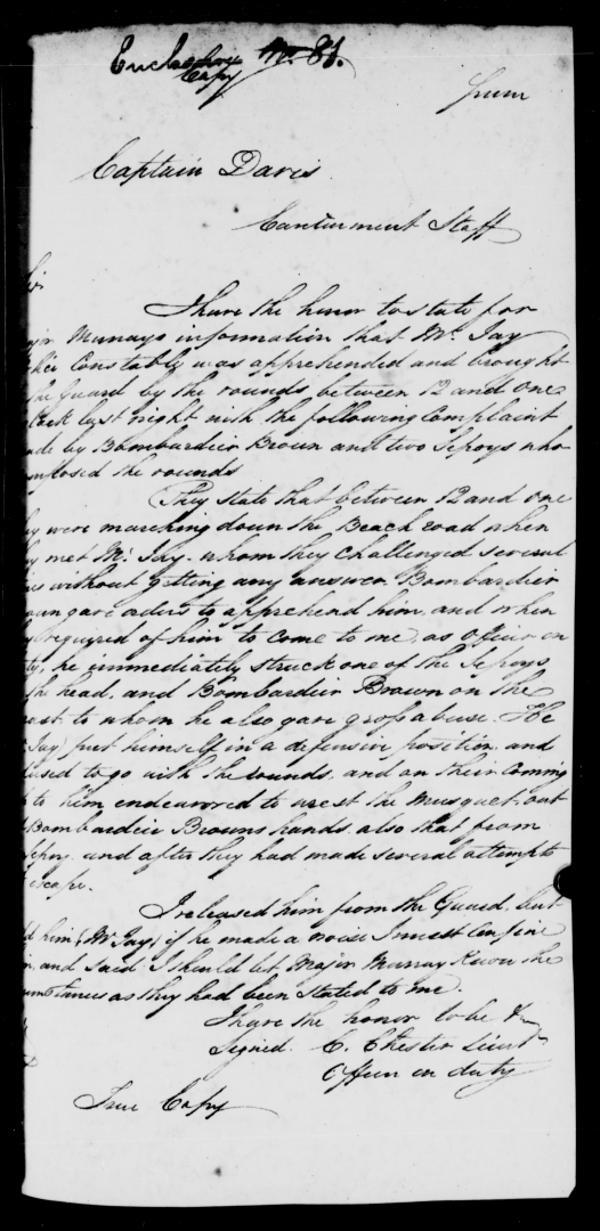 Enclosure No. 81.
Copy
from
Captain Davis
Cantonment Staff
Sir
I have the honor to state for
Murrays information that Mr. Jay
Constable was apprehended and brought
the Guard by the rounds between 12 and one
last night with the following Complaint
by Bombardier Brown and two Sepoys who
the rounds
They state that between 12 and one
were marching down the Beach road when
met Mr. Jay whom they challenged several
without getting any answer. Bombardier
gave orders to apprehend him, and when
required of him to come to me, as officer on
he immediately struck one of the Sepoys
the head, and Bombardier Brown on the
to whom he also gave gross abuse. He
Jay) put himself in a defensive position and
to go with the rounds, and on their coming
to him endeavored to wrest the musquet out
Bombardier Browns hands also that from
and after they had made several attempts
escape.
I released him from the Guard, but
him (Mr. Jay) if he made a noise I must confine
and said I should let Major Murray know the
as they had been stated to me.
I have the honor to be &c
Signed. C. Chester Lieut
Officer on duty
True Copy